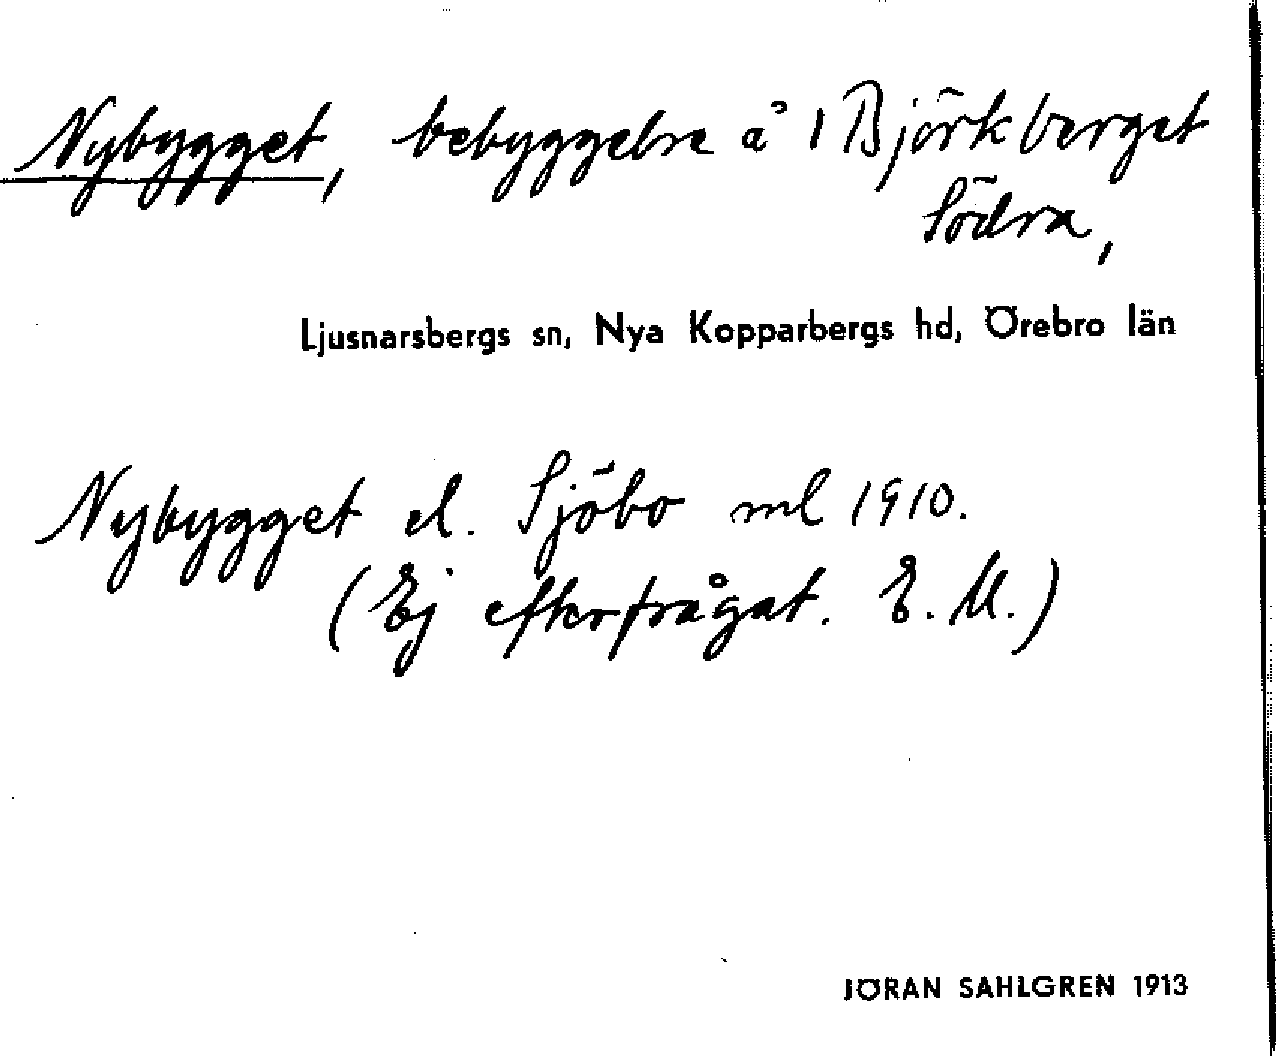 Nybygget, bebyggelse å 1 Björkberget
Södra,
Ljusnarsbergs sn, Nya Kopparbergs hd, Örebro län
Nybygget el. Sjöbo ml 1910.
(Ej efterfrågat. E. M.)
JÖRAN SAHLGREN 1913